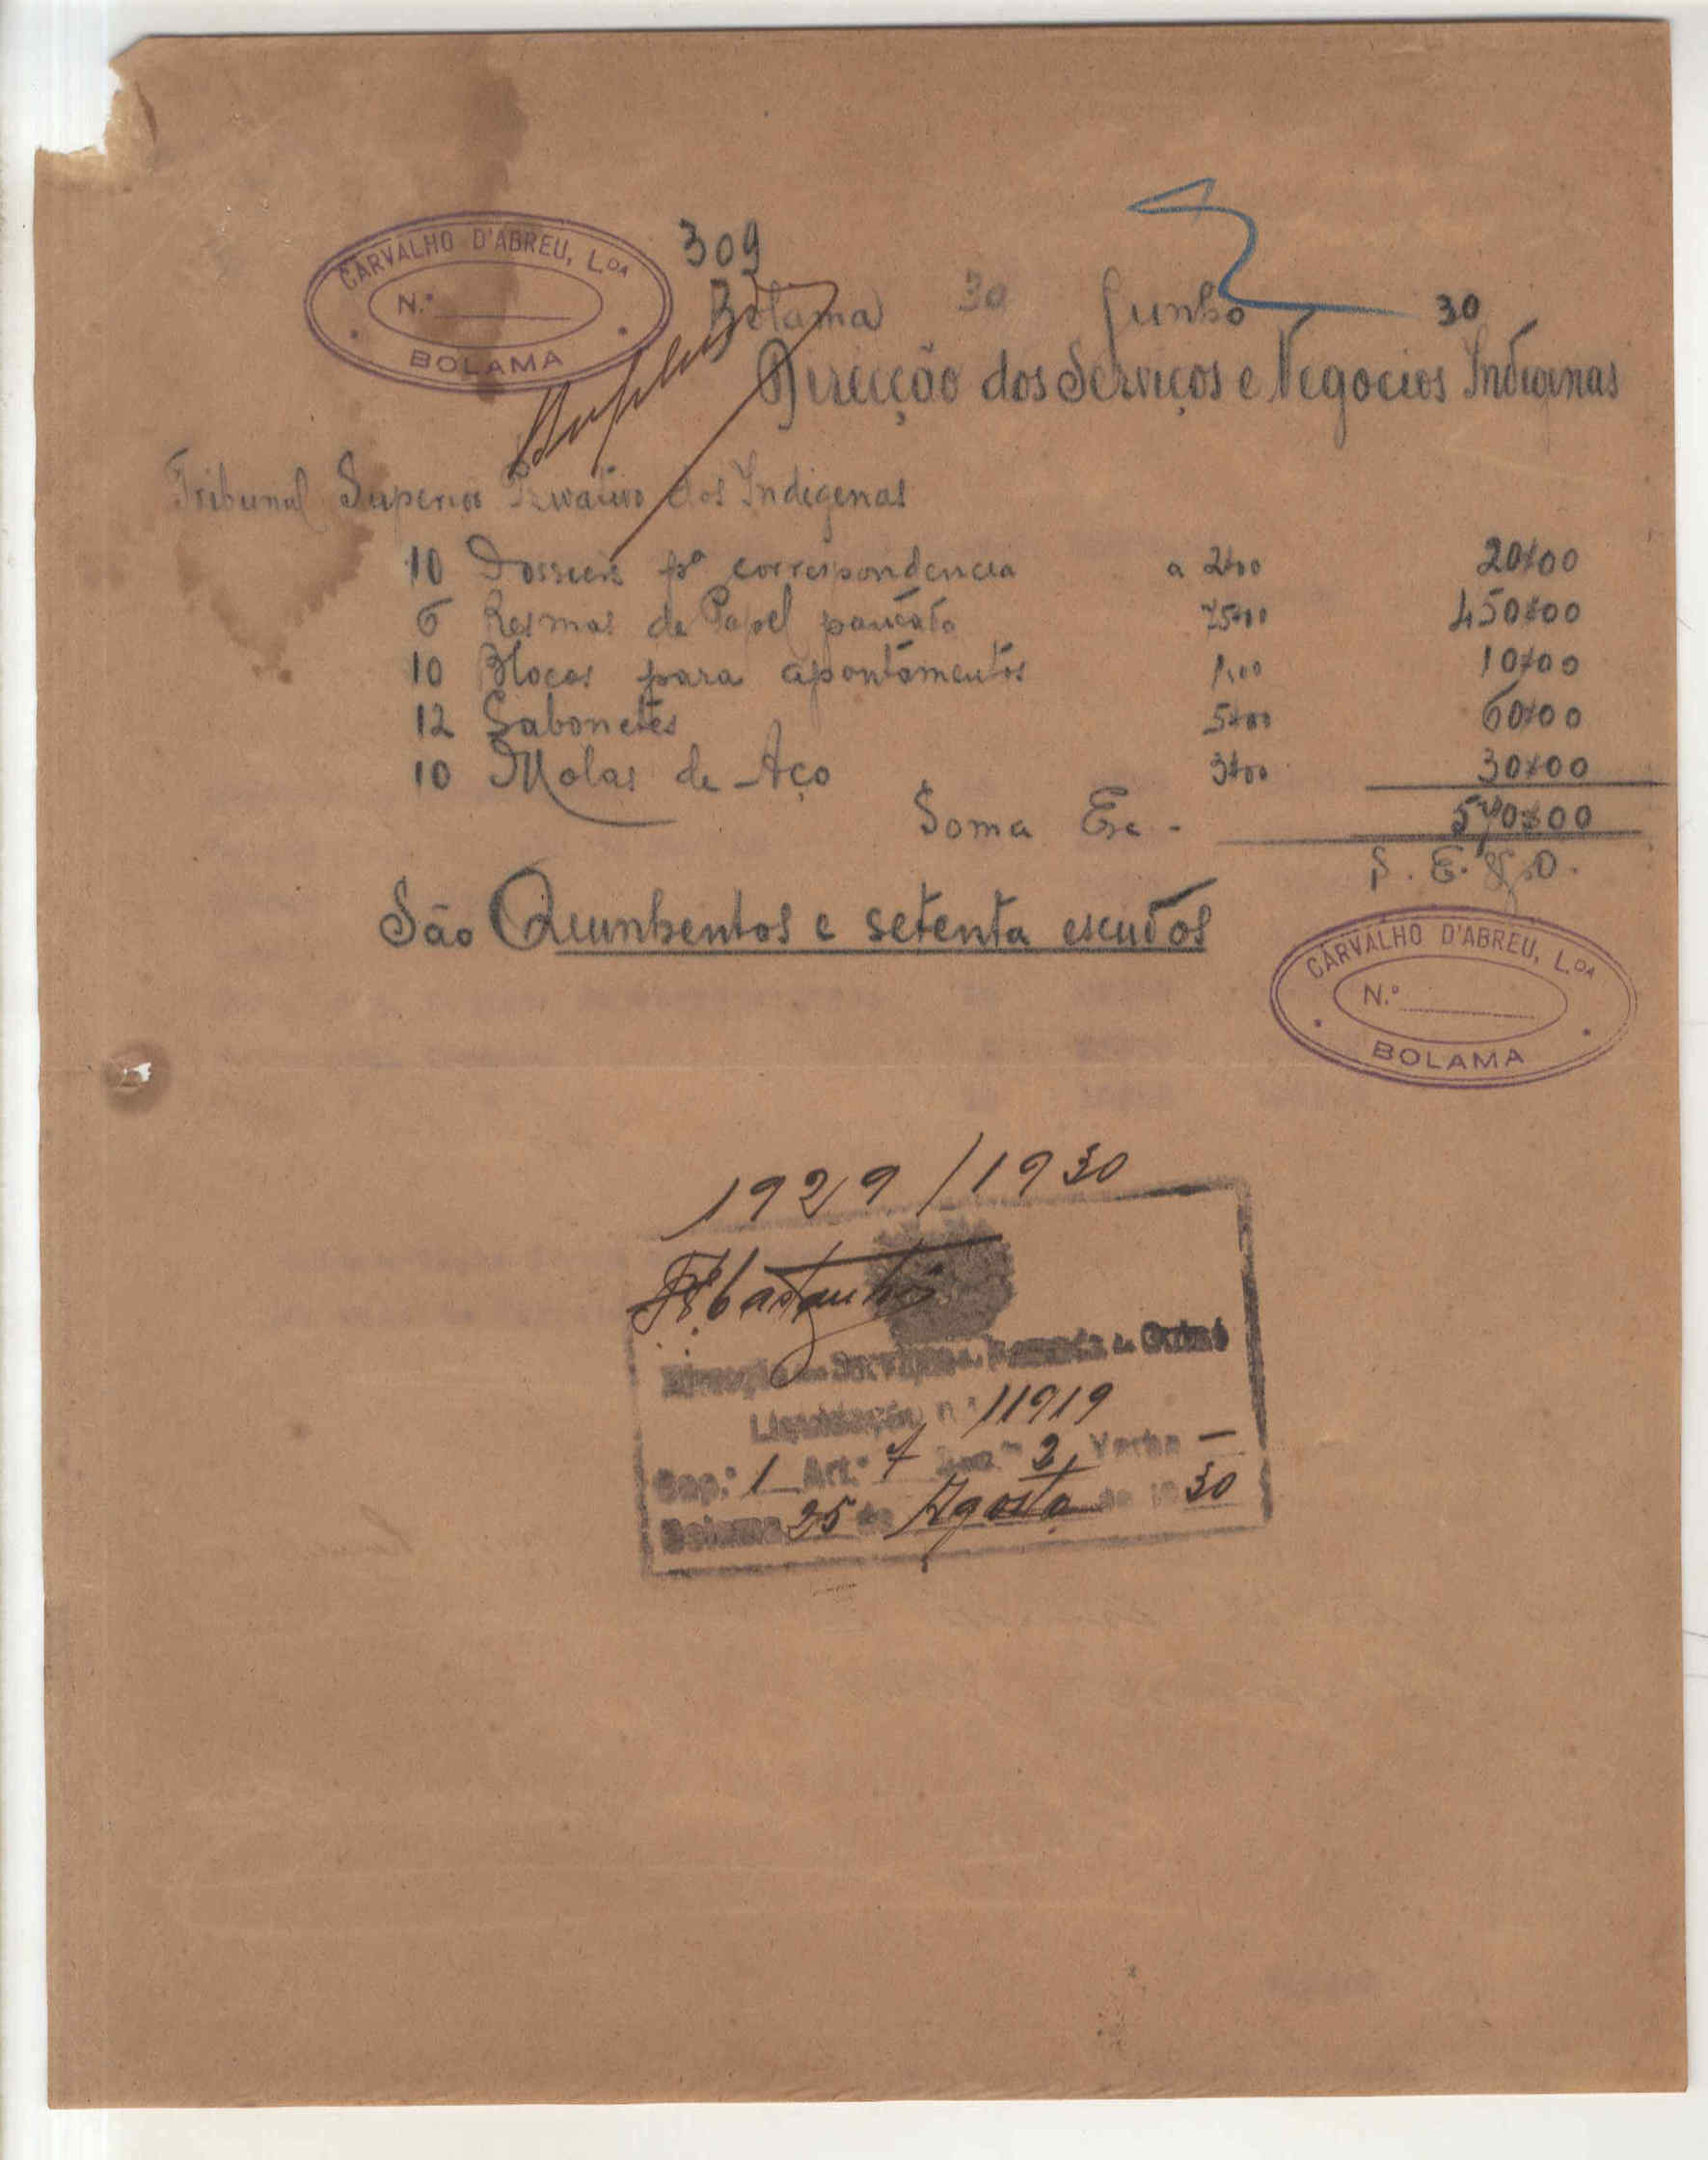 CARVALHO D'ABREU, L.DA
N.º
BOLAMA
309
Bolama 30 Junho 30
Direcção dos Serviços e Negocios Indigenas
Tribunal Superior Privativo dos Indigenas
10 Dossiers pª correspondencia a 2$00 20$00
6 Resmas de Papel pautado 75$00 450$00
10 Blocos para apontamentos 1$00 10$00
12 Sabonetes 5$00 60$00
10 Molas de Aço 3$00 30$00
Soma Esc - 570$00
S. E. & O.
São Quinhentos e setenta escudos
CARVALHO D'ABREU, L.DA
N.º
BOLAMA
1929/1930
Direcção dos Serviços de Fazenda da Guiné
Liquidação n.º 11919
Cap.º 1 Art.º 7 2 Verba —
Bolama 25 de Agosto de 1930